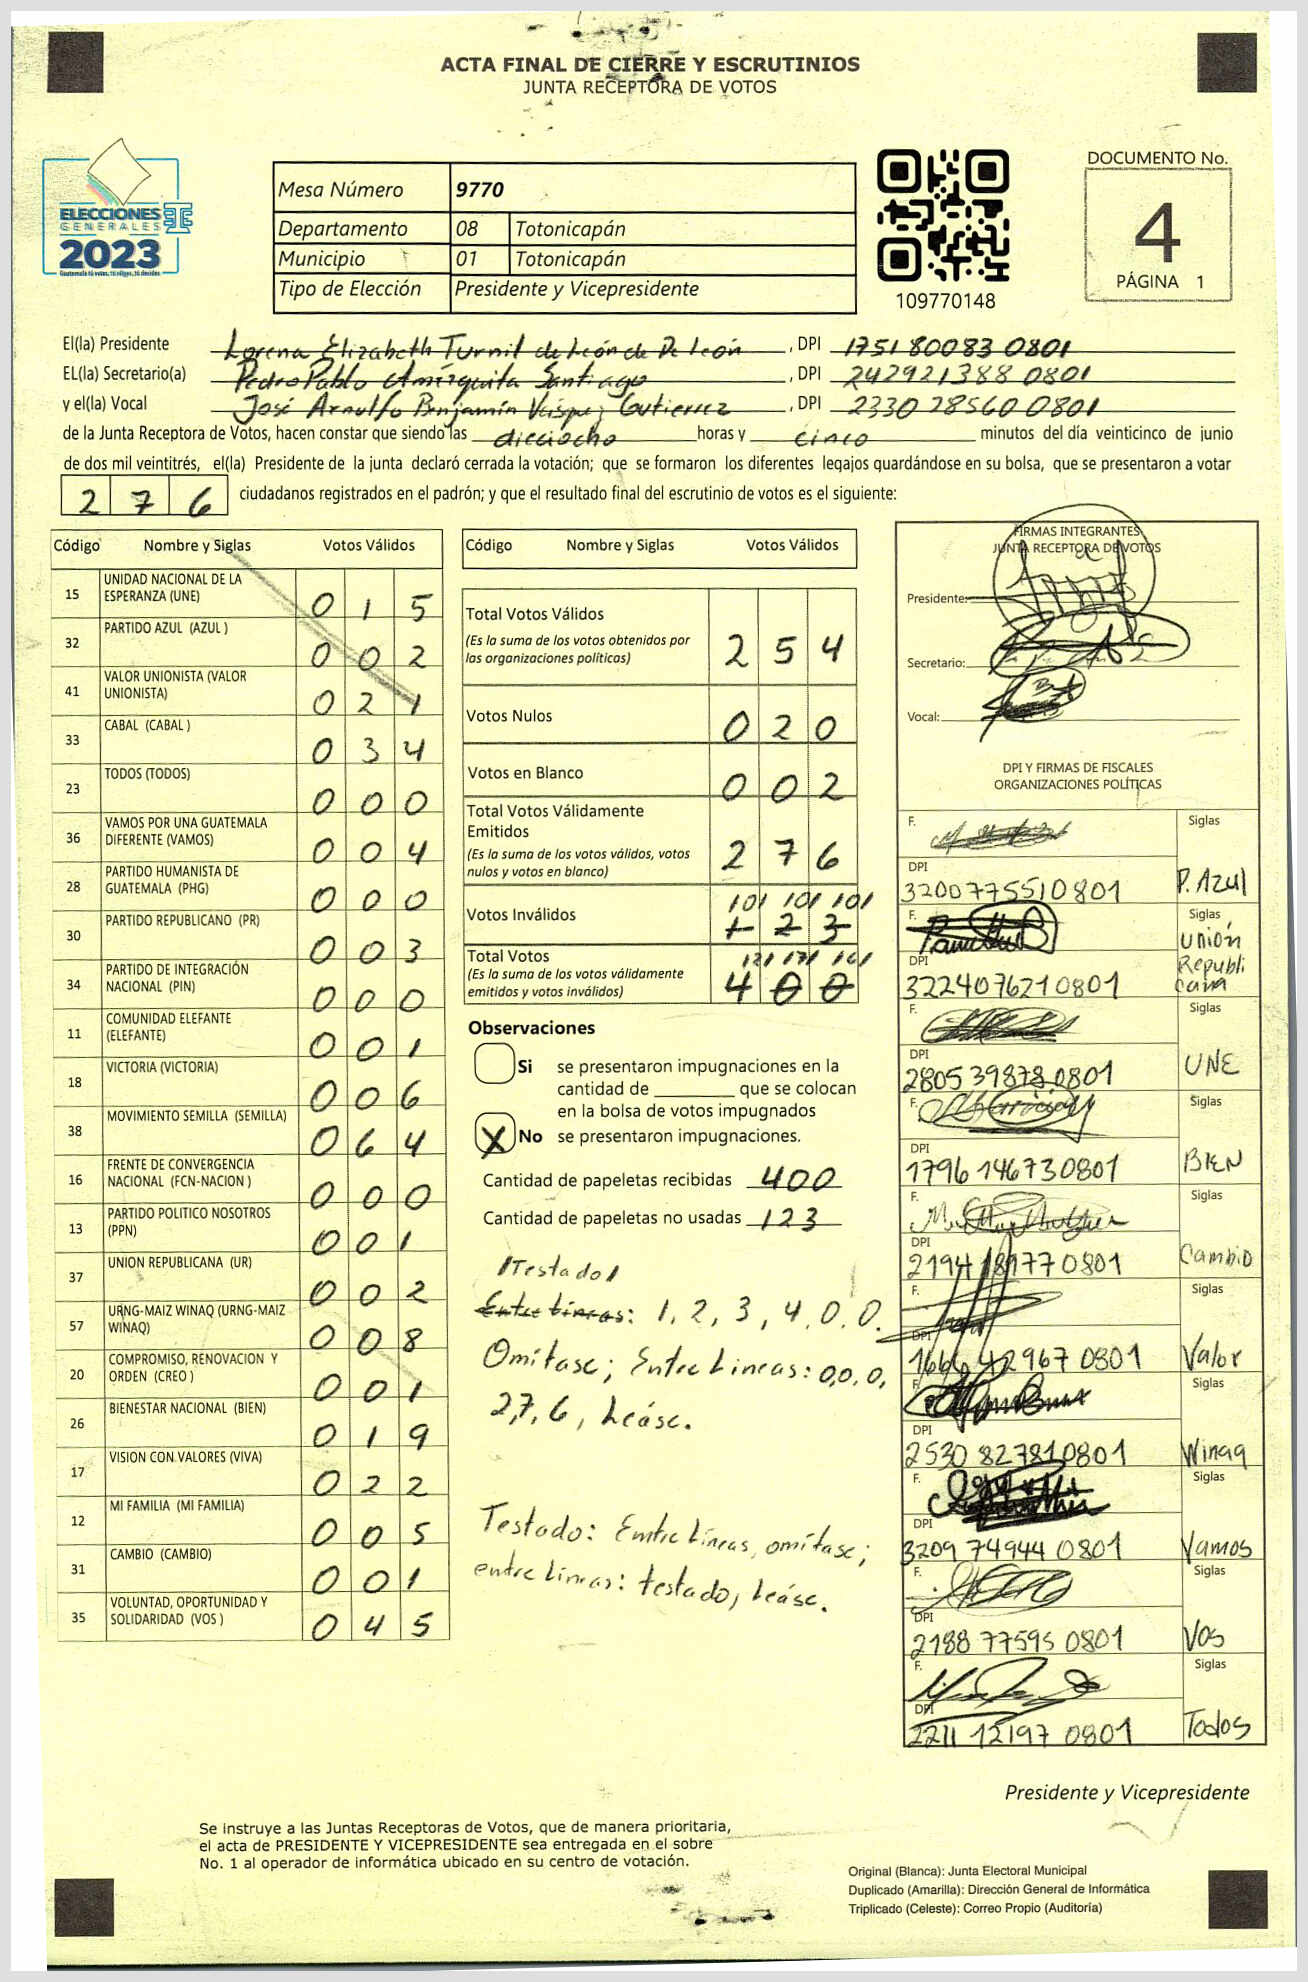 ACTA FINAL DE CIERRE Y ESCRUTINIOS
JUNTA RECEPTORA DE VOTOS
ELECCIONES
GENERALES
2023
Guatemala tú votas, tú eliges, tú decides
Mesa Número 9770
Departamento 08 Totonicapán
Municipio 01 Totonicapán
Tipo de Elección Presidente y Vicepresidente
109770148
DOCUMENTO No.
4
PÁGINA 1
El(la) Presidente Lorena Elizabeth Turnil de León de De León , DPI 1751 80083 0801
EL(la) Secretario(a) Pedro Pablo Amézquita Santiago , DPI 242921388 0801
y el(la) Vocal José Arnulfo Benjamín Vásquez Gutierrez , DPI 2330 28560 0801
de la Junta Receptora de Votos, hacen constar que siendo las dieciocho horas y cinco minutos del día veinticinco de junio
de dos mil veintitrés, el(la) Presidente de la junta declaró cerrada la votación; que se formaron los diferentes legajos guardándose en su bolsa, que se presentaron a votar
2 7 6 ciudadanos registrados en el padrón; y que el resultado final del escrutinio de votos es el siguiente:
Código Nombre y Siglas Votos Válidos
15 UNIDAD NACIONAL DE LA ESPERANZA (UNE) 0 1 5
32 PARTIDO AZUL (AZUL ) 0 0 2
41 VALOR UNIONISTA (VALOR UNIONISTA) 0 2 1
33 CABAL (CABAL ) 0 3 4
23 TODOS (TODOS) 0 0 0
36 VAMOS POR UNA GUATEMALA DIFERENTE (VAMOS) 0 0 4
28 PARTIDO HUMANISTA DE GUATEMALA (PHG) 0 0 0
30 PARTIDO REPUBLICANO (PR) 0 0 3
34 PARTIDO DE INTEGRACIÓN NACIONAL (PIN) 0 0 0
11 COMUNIDAD ELEFANTE (ELEFANTE) 0 0 1
18 VICTORIA (VICTORIA) 0 0 6
38 MOVIMIENTO SEMILLA (SEMILLA) 0 6 4
16 FRENTE DE CONVERGENCIA NACIONAL (FCN-NACION ) 0 0 0
13 PARTIDO POLITICO NOSOTROS (PPN) 0 0 1
37 UNION REPUBLICANA (UR) 0 0 2
57 URNG-MAIZ WINAQ (URNG-MAIZ WINAQ) 0 0 8
20 COMPROMISO, RENOVACION Y ORDEN (CREO ) 0 0 1
26 BIENESTAR NACIONAL (BIEN) 0 1 9
17 VISION CON VALORES (VIVA) 0 2 2
12 MI FAMILIA (MI FAMILIA) 0 0 5
31 CAMBIO (CAMBIO) 0 0 1
35 VOLUNTAD, OPORTUNIDAD Y SOLIDARIDAD (VOS ) 0 4 5
Código Nombre y Siglas Votos Válidos
Total Votos Válidos
(Es la suma de los votos obtenidos por
las organizaciones políticas) 2 5 4
Votos Nulos 0 2 0
Votos en Blanco 0 0 2
Total Votos Válidamente
Emitidos
(Es la suma de los votos válidos, votos
nulos y votos en blanco) 2 7 6
Votos Inválidos /0/ /0/ /0/
1 2 3
Total Votos /2/ /7/ /6/
(Es la suma de los votos válidamente
emitidos y votos inválidos) 4 0 0
Observaciones
Si se presentaron impugnaciones en la
cantidad de ________ que se colocan
en la bolsa de votos impugnados
X No se presentaron impugnaciones.
Cantidad de papeletas recibidas 400
Cantidad de papeletas no usadas 123
/Testado/
Entre Líneas: 1, 2, 3, 4, 0, 0.
Omítase; Entre Lineas: 0,0,0,
2,7,6, Leáse.
Testado: Entre Líneas, omítase;
entre lineas: testado, Leáse.
FIRMAS INTEGRANTES
JUNTA RECEPTORA DE VOTOS
Presidente:
Secretario:
Vocal:
DPI Y FIRMAS DE FISCALES
ORGANIZACIONES POLÍTICAS
F. Siglas
DPI
3200775510801 P. Azul
F. Siglas
DPI
3224076210801 Unión Republicana
F. Siglas
DPI
2805 39878 0801 UNE
F. Siglas
DPI
1796 14673 0801 BIEN
F. Siglas
DPI
2194 18177 0801 Cambio
F. Siglas
DPI
1666 42967 0801 Valor
F. Siglas
DPI
2530 82781 0801 Winaq
F. Siglas
DPI
3209 74944 0801 Vamos
F. Siglas
DPI
2188 77595 0801 Vos
F. Siglas
DPI
2211 12197 0801 Todos
Presidente y Vicepresidente
Se instruye a las Juntas Receptoras de Votos, que de manera prioritaria,
el acta de PRESIDENTE Y VICEPRESIDENTE sea entregada en el sobre
No. 1 al operador de informática ubicado en su centro de votación.
Original (Blanca): Junta Electoral Municipal
Duplicado (Amarilla): Dirección General de Informática
Triplicado (Celeste): Correo Propio (Auditoría)